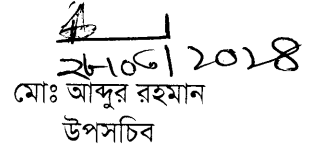 ২৮/০৫/২০২৪
মোঃ আব্দুর রহমান
উপসচিব